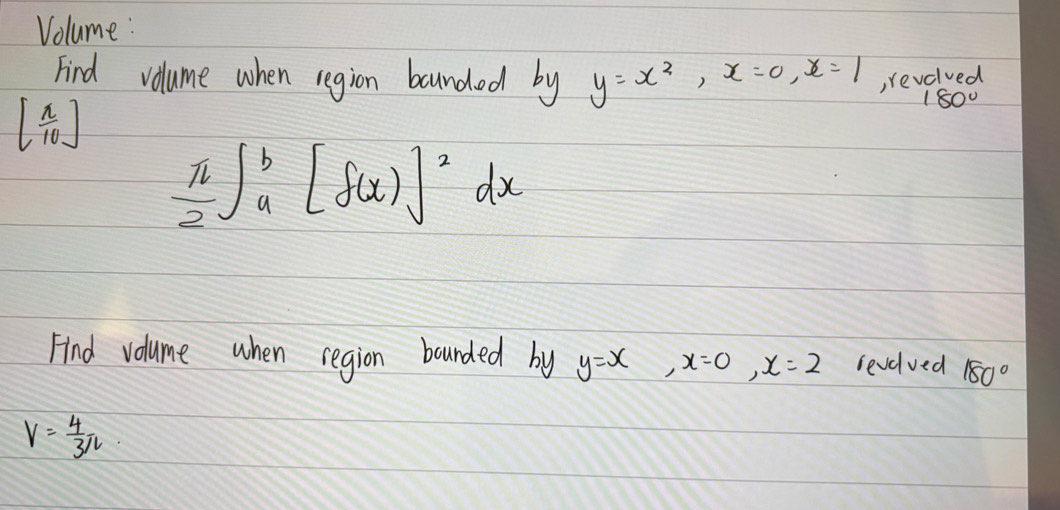 Volume:
Find volume when region bounded by y = x², x = 0, x = 1, revolved 180°
[π/10]
π/2 ∫ₐᵇ [f(x)]² dx
Find volume when region bounded by y=x, x=0, x=2 revolved 180°
V = 4/3π.